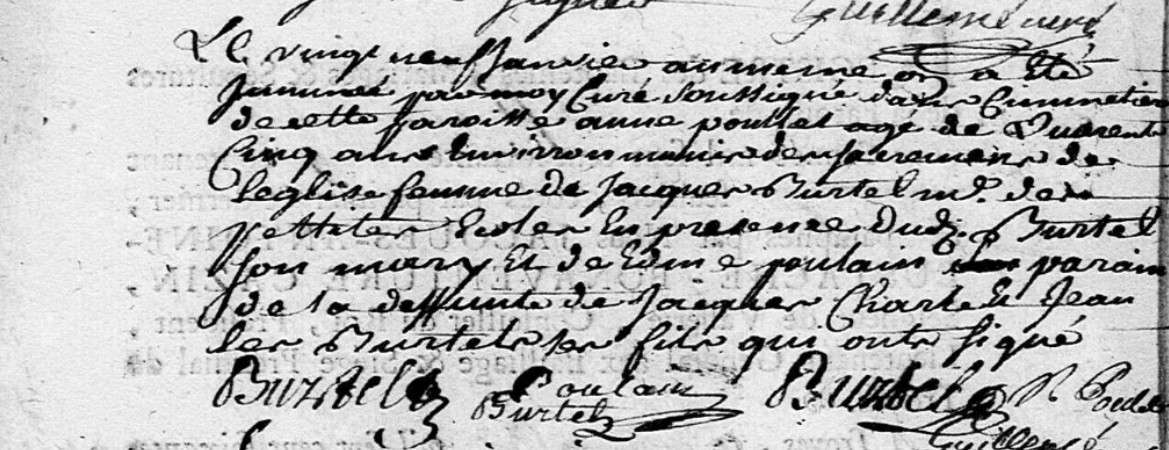 Guillemé curé
Le vingt neuf Janvier au meme on a Eté
Jnhumée par moy Curé Soussigné dans le Cimmetiere
de cette paroisse anne poullet agé de Quarente
Cinq ans Environ munie des sacremens de
leglise femme de Jacques Burtel md. des
pettites Ecoles En presence dudt. Burtel
son mary Et de Edme poulain parain
de la deffunte de Jacques Charle Et Jean
les Burtels ses fils qui onts signé
Burtel Poulain Burtel N
Burtel
Guillemé